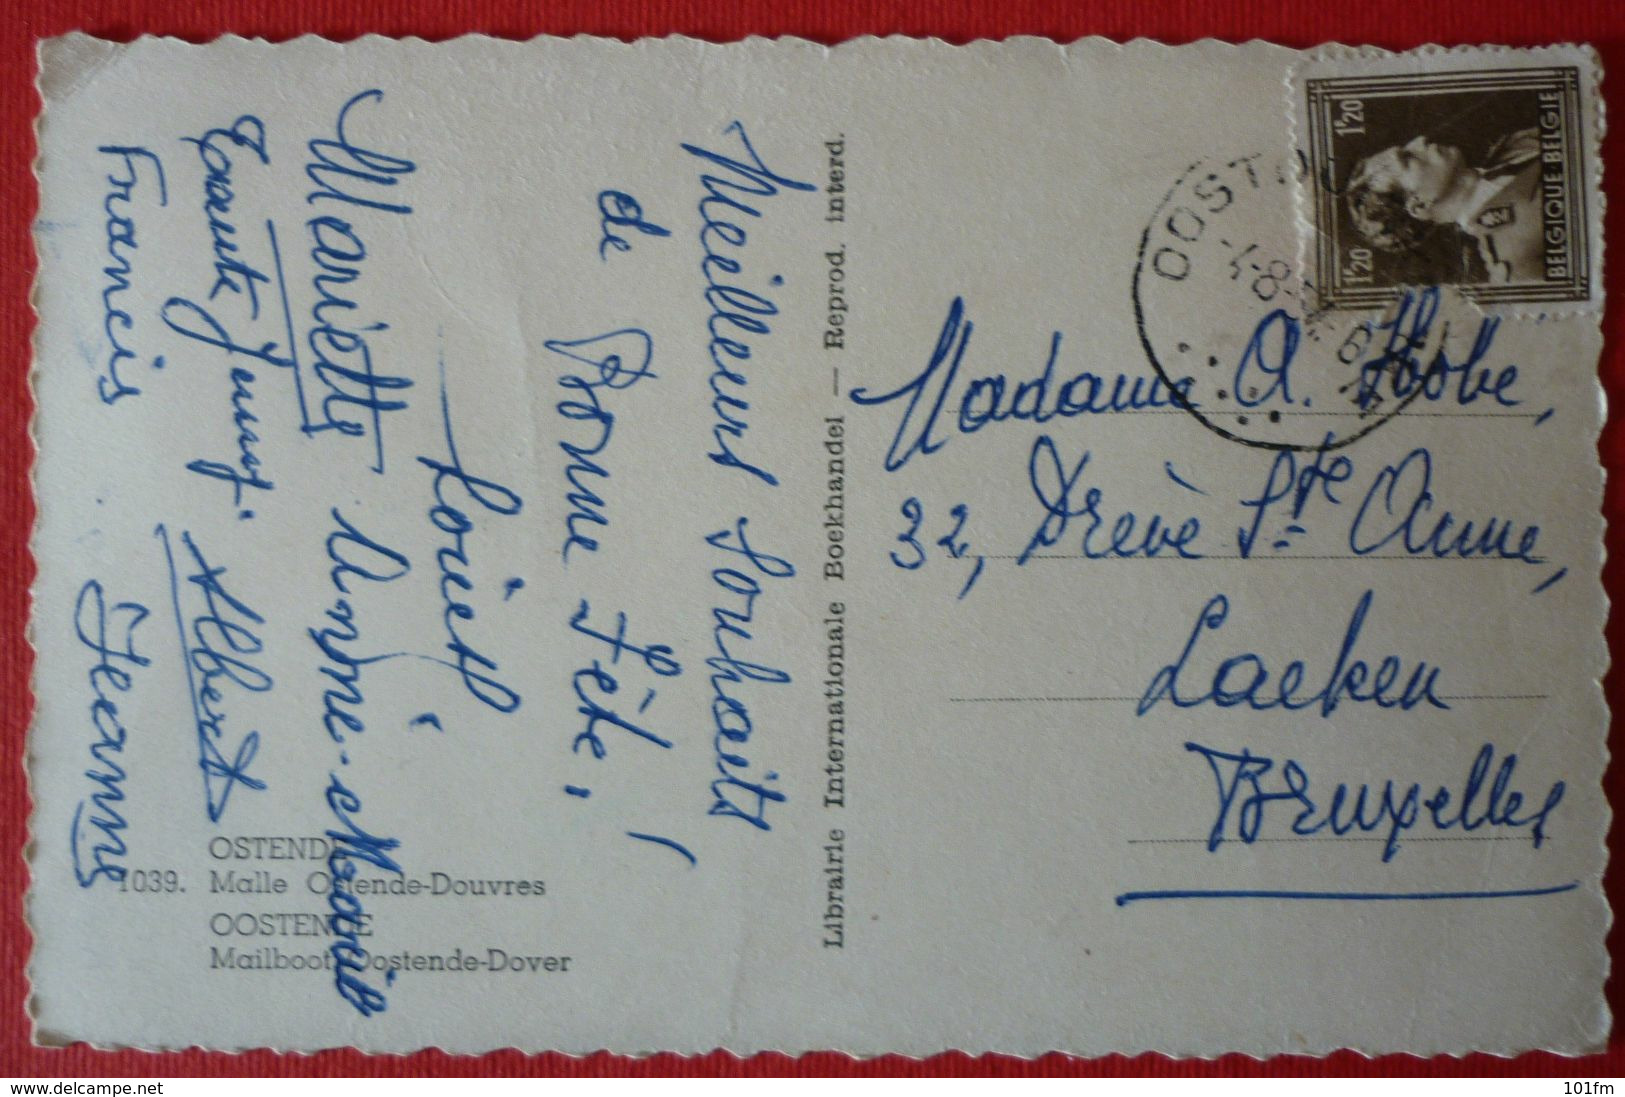 Meilleurs Souhaits
de Bonne Fête!
Louisa
Mariette Anne-Marie
Tante Jenny. Albert
Francis Jeanne
OSTENDE
1039. Malle Ostende-Douvres
OOSTENDE
Mailboot Oostende-Dover
Librairie Internationale Boekhandel — Reprod. interd.
1F20 1F20
BELGIQUE BELGIE
Madame A. Hobbe,
32, Drève Ste Anne,
Laeken
Bruxelles
www.delcampe.net
101fm